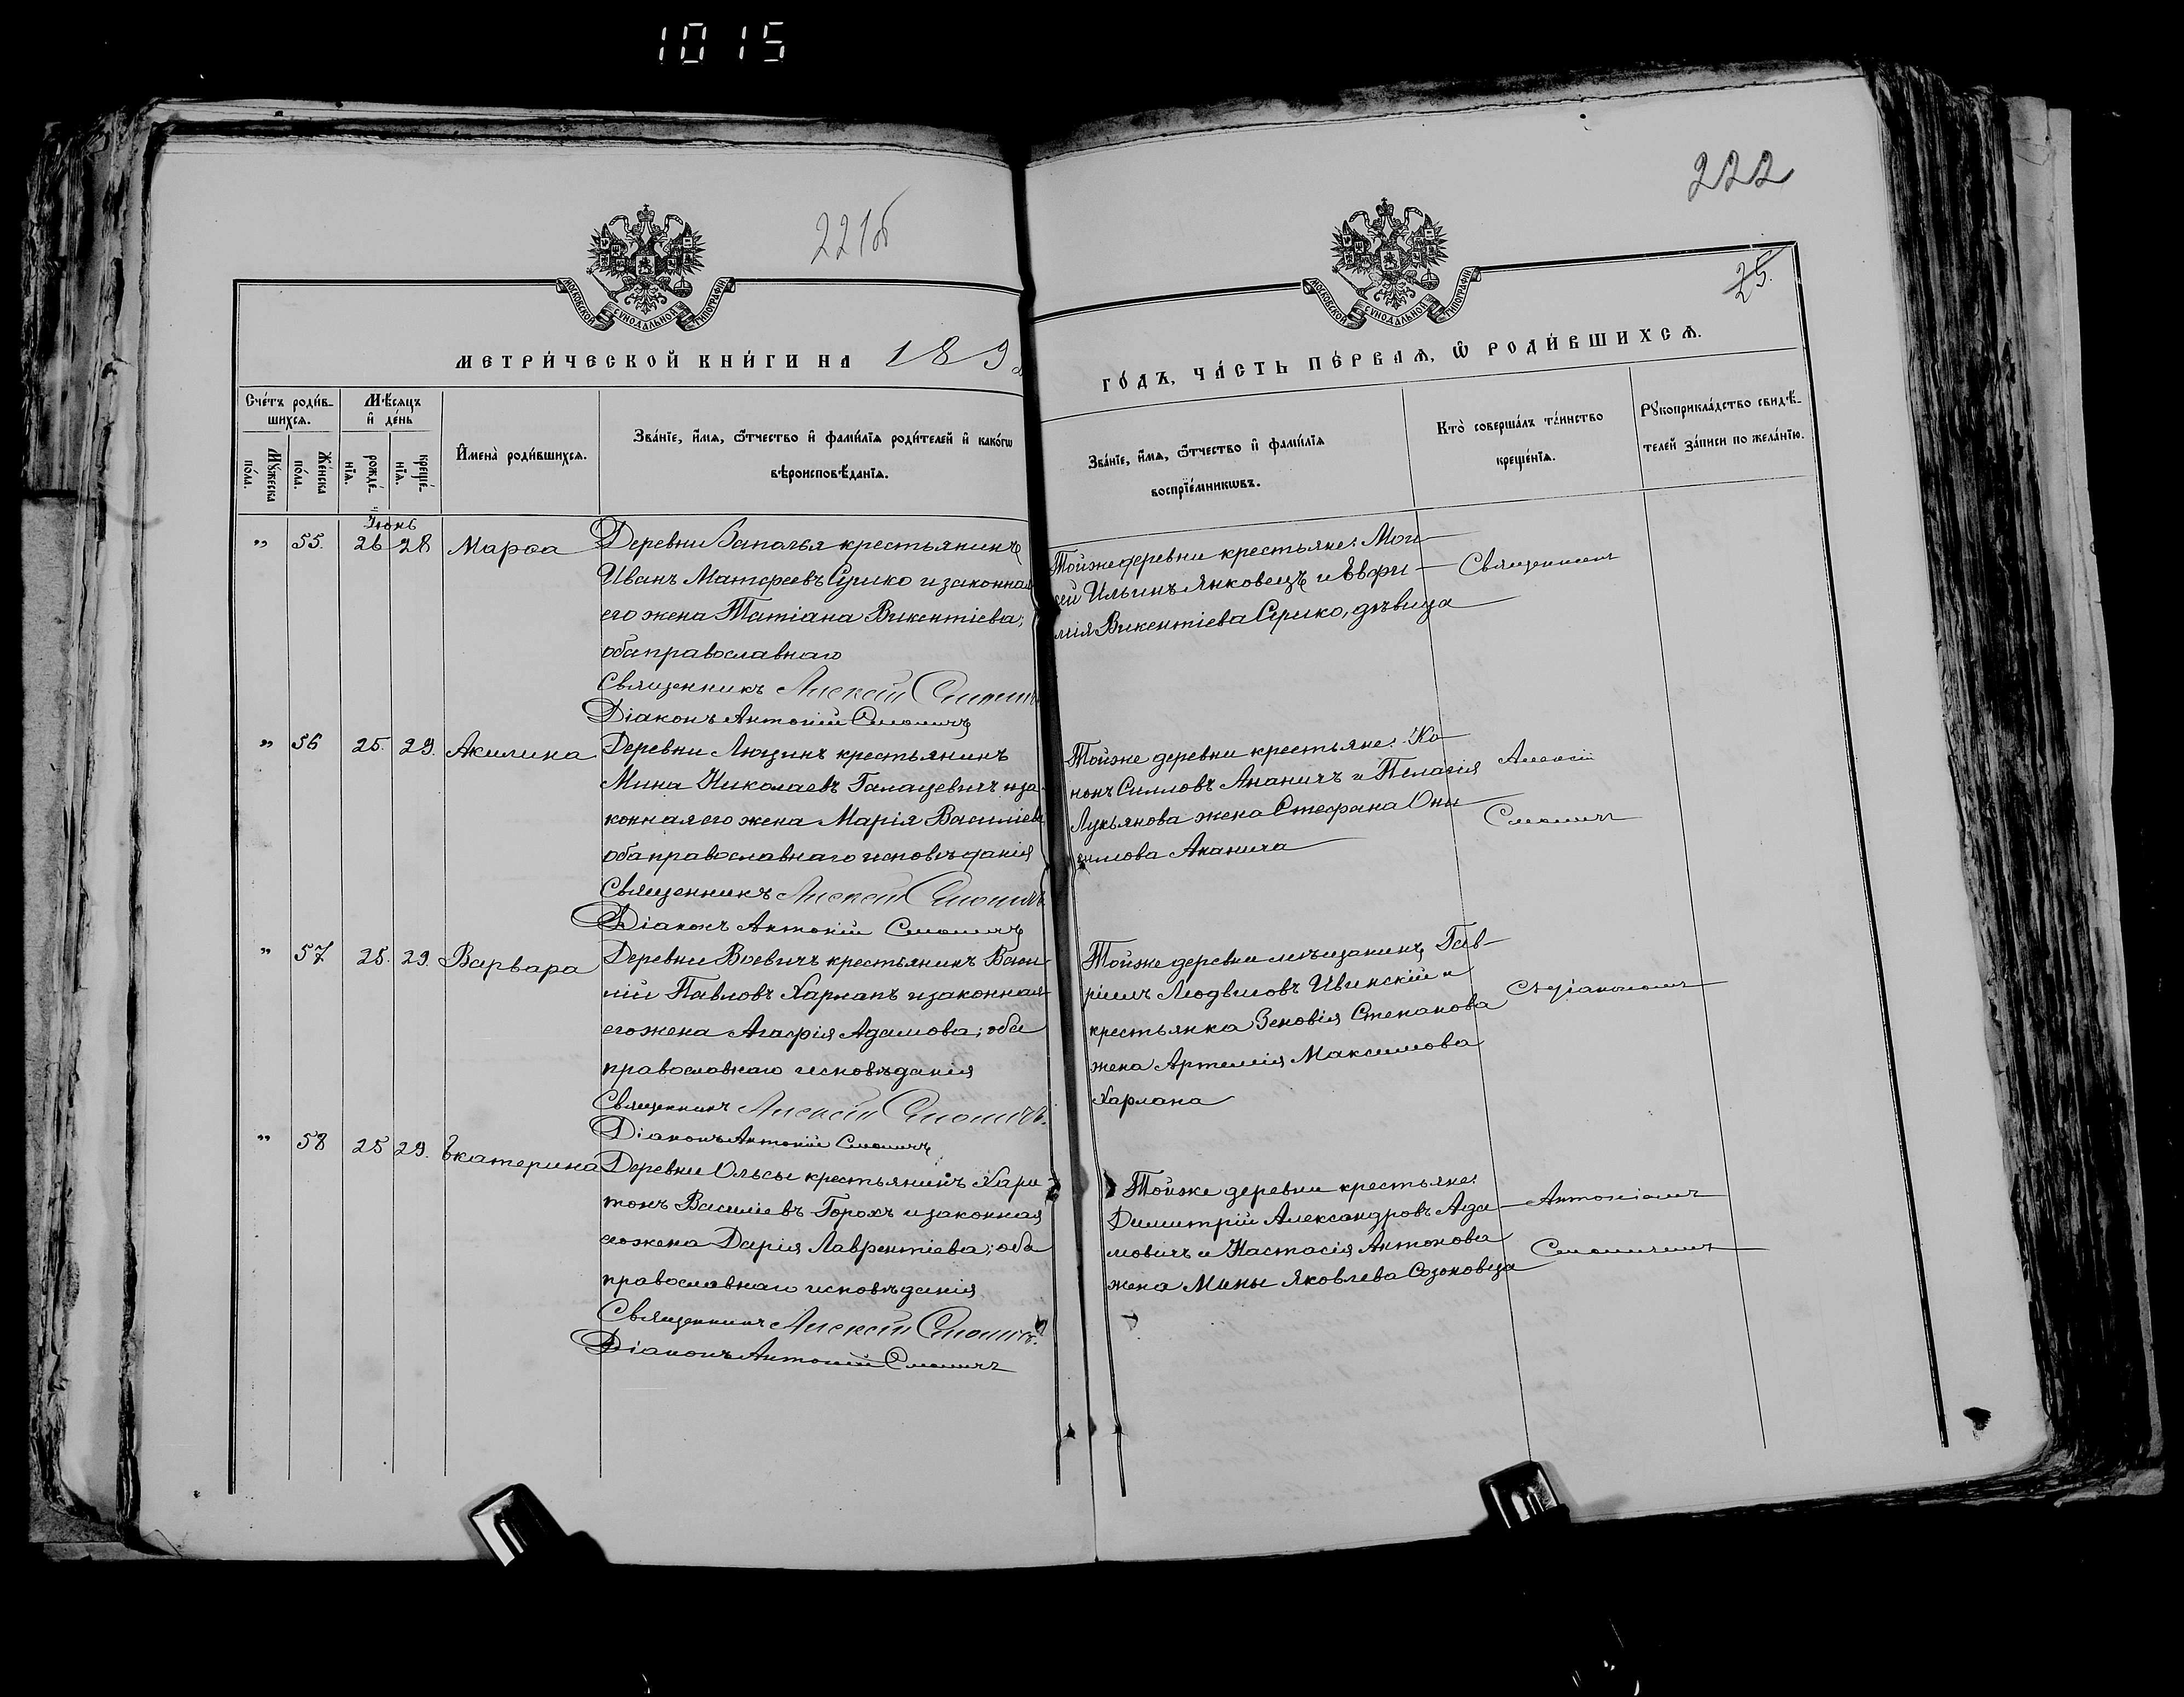 1015
221об
222
25.
МОСКОВСКОЙ СѴНОДАЛЬНОЙ ТИПОГРАФІИ
МОСКОВСКОЙ СѴНОДАЛЬНОЙ ТИПОГРАФІИ
МЕТРИ́ЧЕСКОЙ КНИ́ГИ НА 189
ГО́ДЪ, ЧА́СТЬ ПЕ́РВАѦ, Ѿ РОДИ́ВШИХСѦ.
Сче́тъ роди́в-
шихсѧ.
Мꙋ́жеска
по́ла.
Же́нска
по́ла.
Мѣ́сѧцъ
и҆ де́нь
рожде́-
нїѧ.
креще́-
нїѧ.
И҆мена̀ роди́вшихсѧ.
Зва́нїе, и҆́мѧ, ѻ҆́тчество и҆ фами́лїѧ роди́телей и҆ како́гѡ
вѣроисповѣ́данїѧ.
Зва́нїе, и҆́мѧ, ѻ҆́тчество и҆ фами́лїѧ
воспрїе́мникѡвъ.
Кто̀ соверша́лъ та́инство
креще́нїѧ.
Рꙋкоприкла́дство свидѣ́-
телей за́писи по жела́нїю.
Іюнь
„ 55. 26 28 Марѳа
Деревни Заполья крестьянинъ
Иванъ Матѳеевъ Сушко и законная
его жена Татіана Викентіева;
оба православнаго
Священникъ Алексій Смоличъ
Діаконъ Антоній Смоличъ
Тойже деревни крестьяне: Мои-
сей Ильинъ Янковецъ и Евфи-
мія Викентіева Сушко, дѣвица
Священникъ
„ 56 25. 29. Акилина
Деревни Люцинъ крестьянинъ
Мина Николаевъ Галацевичъ и за-
конная его жена Марія Василіева
оба православнаго исповѣданія
Священникъ Алексій Смоличъ
Діаконъ Антоній Смоличъ
Тойже деревни крестьяне: Ко-
нонъ Силловъ Ананичъ и Пелагія
Лукьянова жена Стефана Они
симова Ананича
Алексій
Смоличъ
„ 57 25. 29. Варвара
Деревни Воевичъ крестьянинъ Васи-
лій Павловъ Харлапъ и законная
его жена Агафія Адамова; оба
православнаго исповѣданія
Священникъ Алексій Смоличъ.
Діаконъ Антоній Смоличъ
Тойже деревни мѣщанинъ Гав-
ріилъ Людвиговъ Ивинскій и
крестьянка Зеновія Степанова
жена Артемія Максимова
Харлапа
Съ діакономъ
„ 58 25 29. Екатерина
Деревни Ольсы крестьянинъ Хари-
тонъ Василіевъ Горохъ и законная
его жена Дарія Лаврентіева; оба
православнаго исповѣданія
Священникъ Алексій Смоличъ.
Діаконъ Антоній Смоличъ
Тойже деревни крестьяне:
Димитрій Александровъ Ада-
мовичъ и Настасія Антонова
жена Мины Яковлева Созоновца
Антоніемъ
Смоличемъ